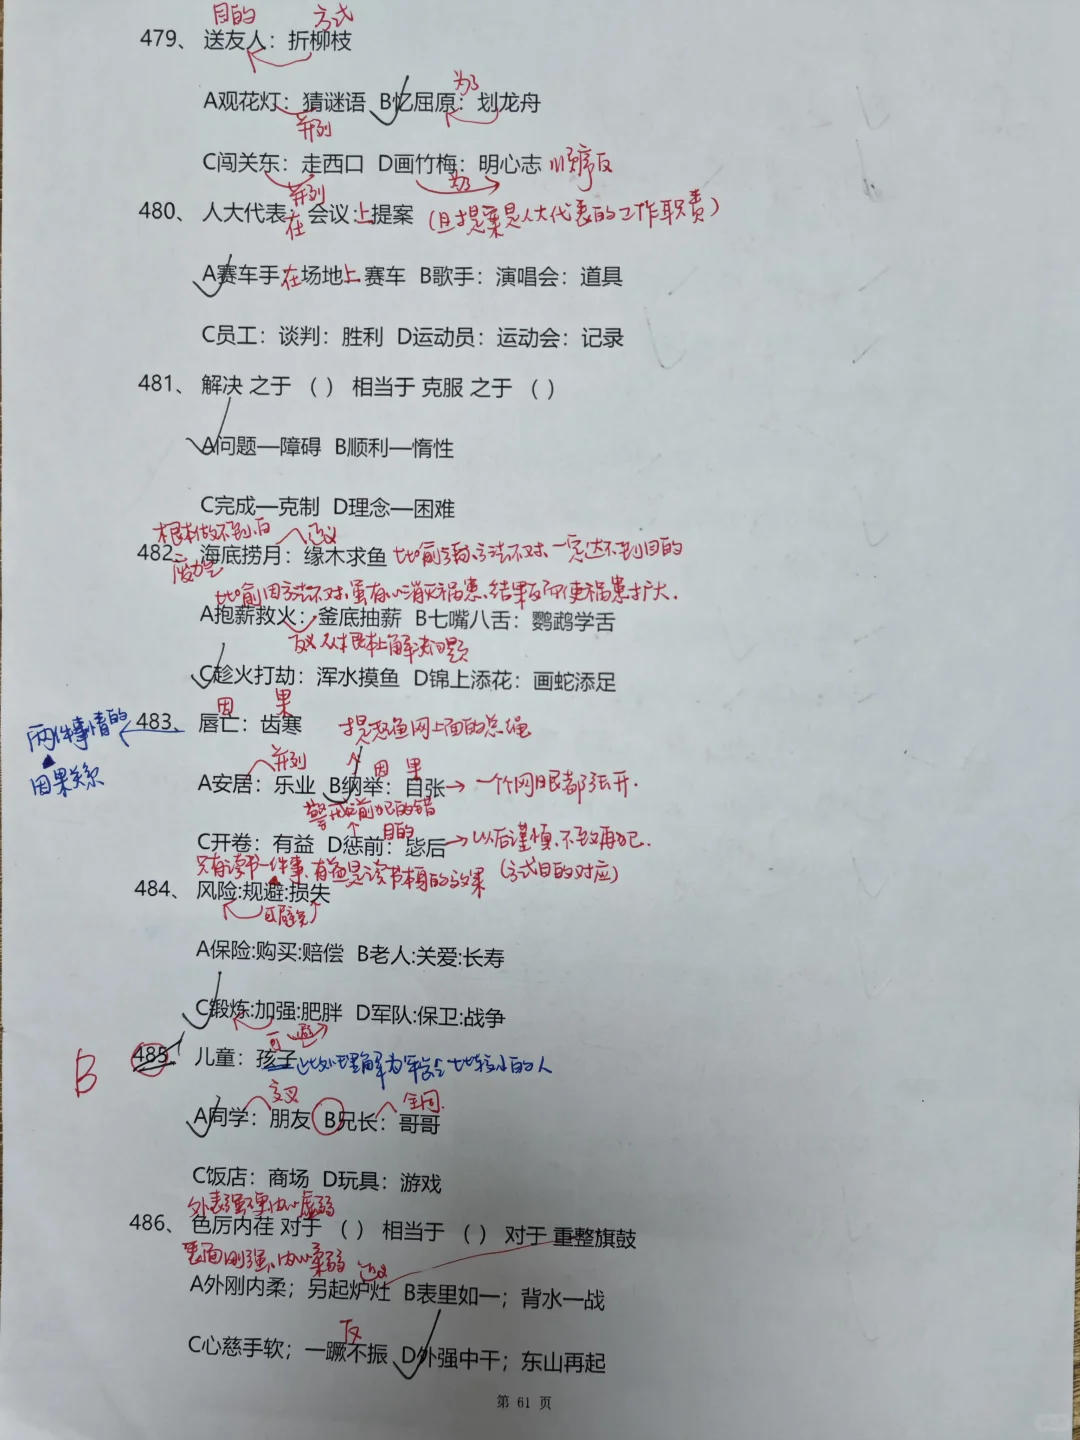 目的 方式
479、 送友人：折柳枝
为了
A观花灯：猜谜语 B忆屈原：划龙舟
并列
C闯关东：走西口 D画竹梅：明心志 顺序反
并列 为了
480、 人大代表：会议：提案 (且提案是人大代表的工作职责)
在 上
A赛车手在场地上赛车 B歌手：演唱会：道具
C员工：谈判：胜利 D运动员：运动会：记录
481、 解决 之于 （ ） 相当于 克服 之于 （ ）
A问题—障碍 B顺利—惰性
C完成—克制 D理念—困难
根本做不到,白 近义
482、 海底捞月：缘木求鱼 比喻方向、方法不对,一定达不到目的
费力气
比喻因方法不对,虽有心消灭祸患,结果反而使祸患扩大.
A抱薪救火：釜底抽薪 B七嘴八舌：鹦鹉学舌
反义 从根本上解决问题
C趁火打劫：浑水摸鱼 D锦上添花：画蛇添足
因 果
两件事情的 483、 唇亡：齿寒 提起鱼网上面的总绳
因果关系
并列 因 果
A安居：乐业 B纲举：目张→一个个网眼都张开.
警戒之前犯的错
目的
C开卷：有益 D惩前：毖后→以后谨慎,不致再犯.
只有读书一件事,有益是读书本身的效果 (方式目的对应)
484、 风险:规避:损失
可避免
A保险:购买:赔偿 B老人:关爱:长寿
C锻炼:加强:肥胖 D军队:保卫:战争
可 避
B 485、 儿童：孩子 此处理解为年龄比较小的人
交叉 全同.
A同学：朋友 B兄长：哥哥
C饭店：商场 D玩具：游戏
外表强硬内心虚弱
486、 色厉内荏 对于 （ ） 相当于 （ ） 对于 重整旗鼓
表面刚强,内心柔弱 近义
A外刚内柔；另起炉灶 B表里如一；背水一战
反
C心慈手软；一蹶不振 D外强中干；东山再起
第 61 页